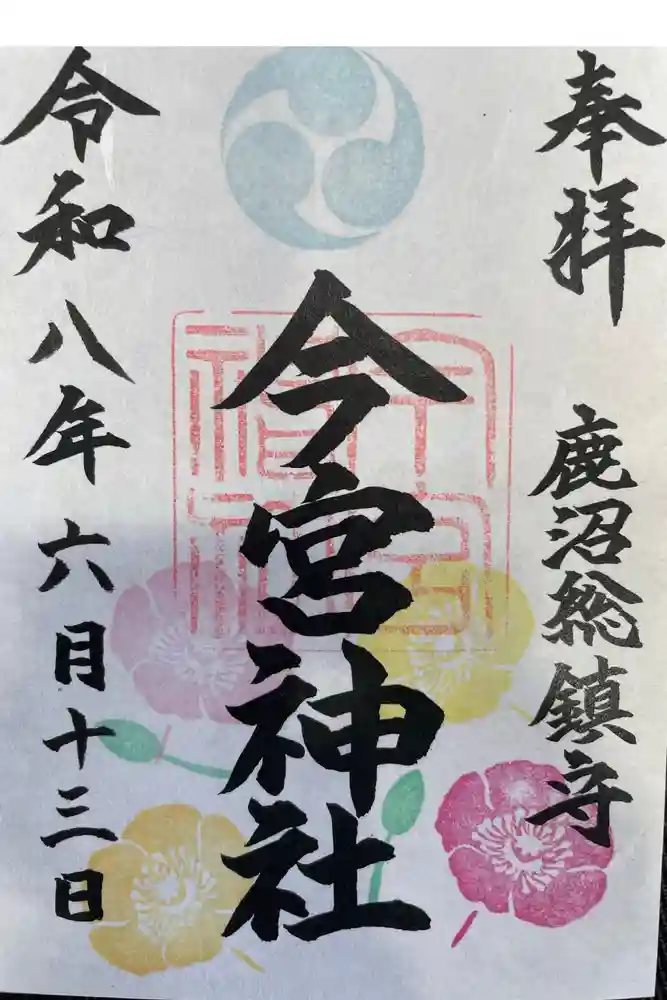 奉拝
鹿沼総鎮守
今宮神社
令和八年六月十三日